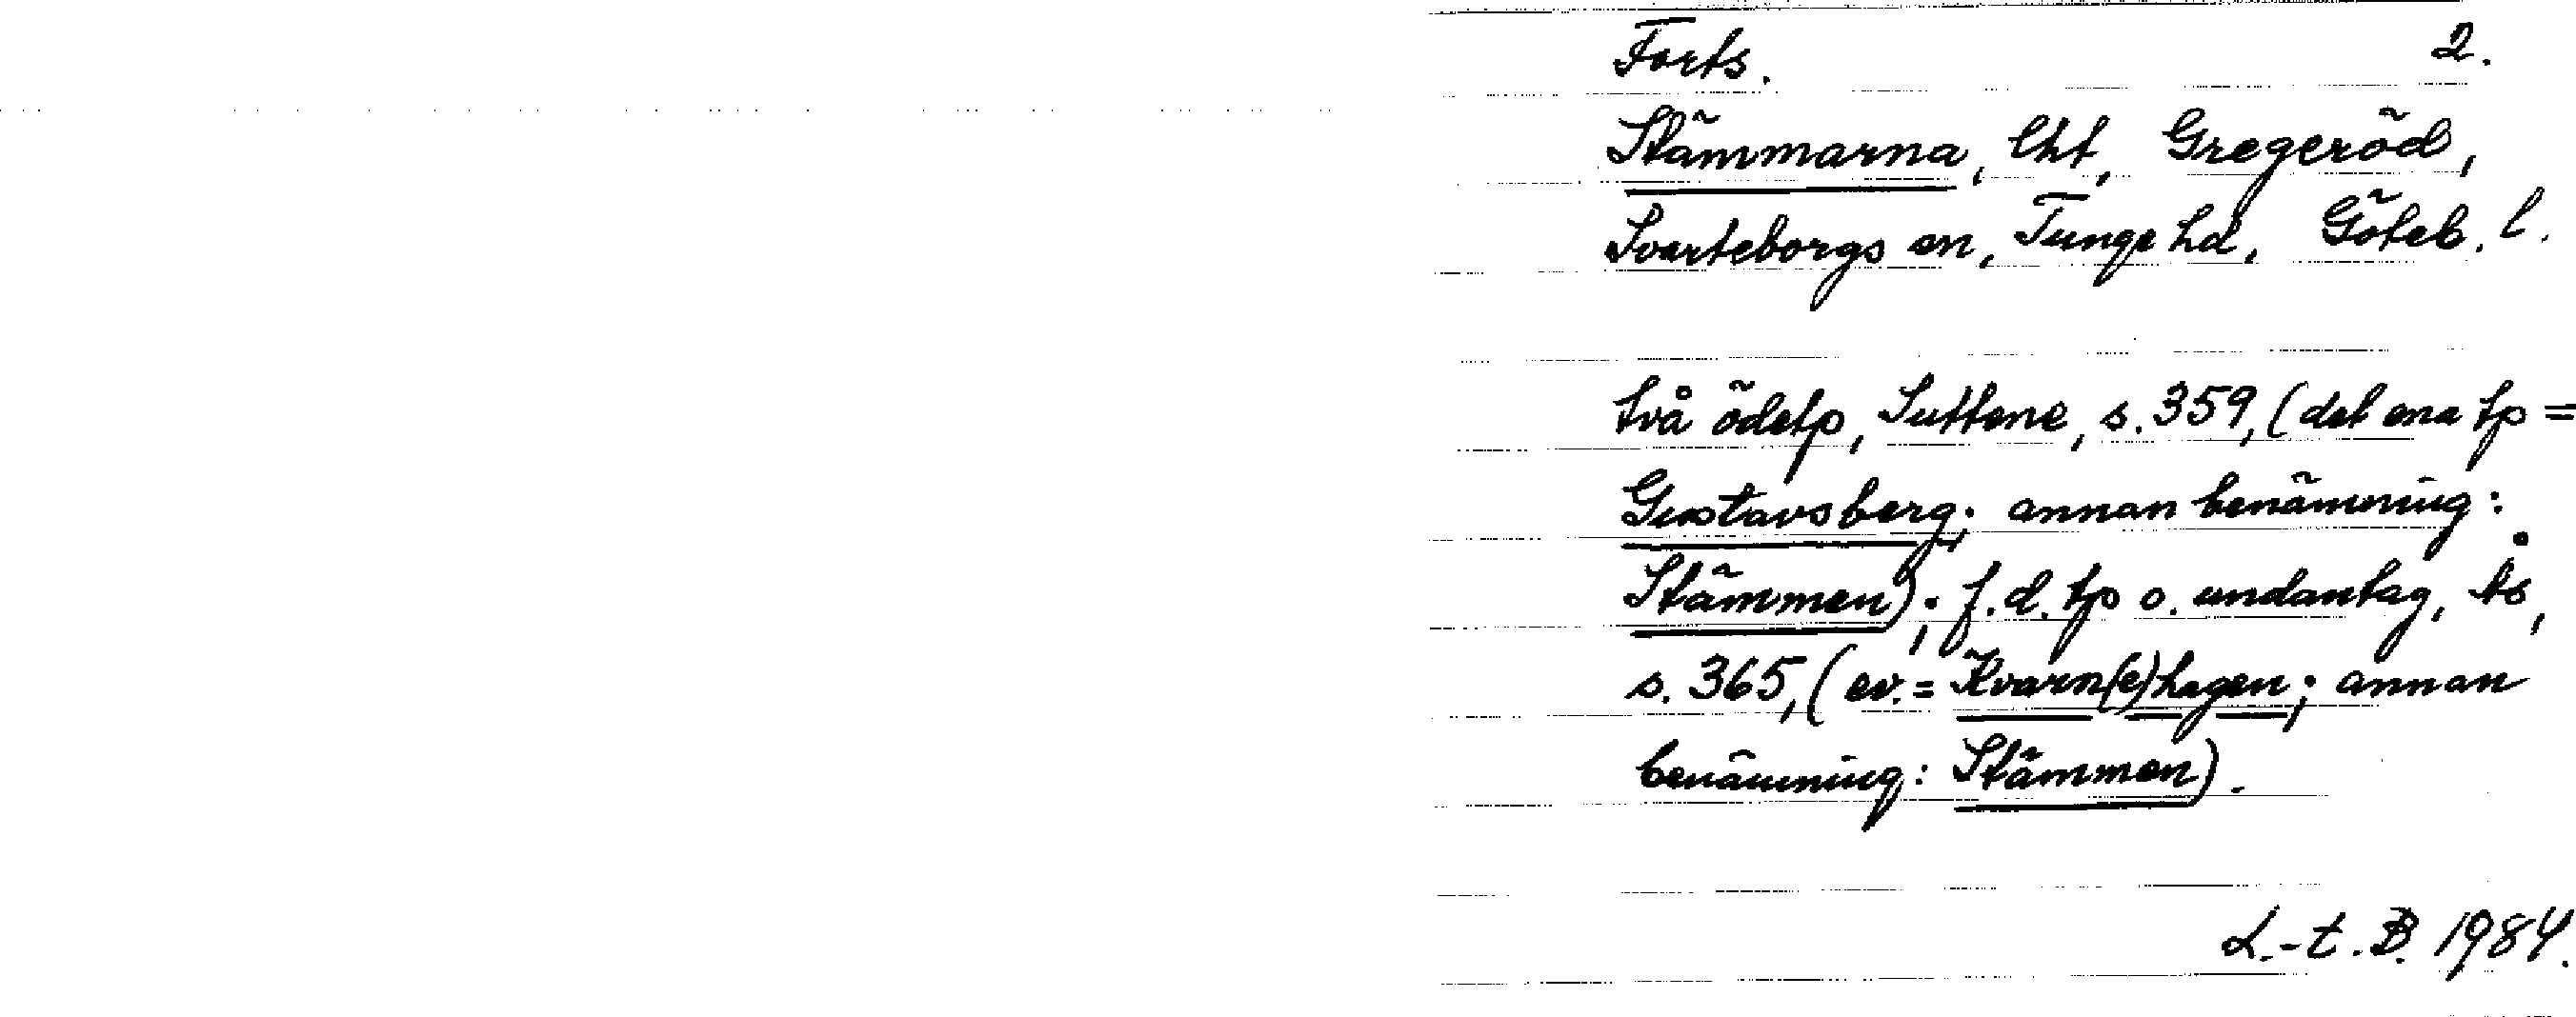 Forts. 2.
Stämmarna, lht, Gregeröd,
Svarteborgs sn, Tunge hd, Göteb. l.
två ödetp, Suttene, s. 359, (det ena tp =
Gustavsberg; annan benämning:
Stämmen); f.d. tp o. undantag, ås,
s. 365, (ev. = Kvarn(e)hagen; annan
benämning: Stämmen).
L.-t. B. 1984.